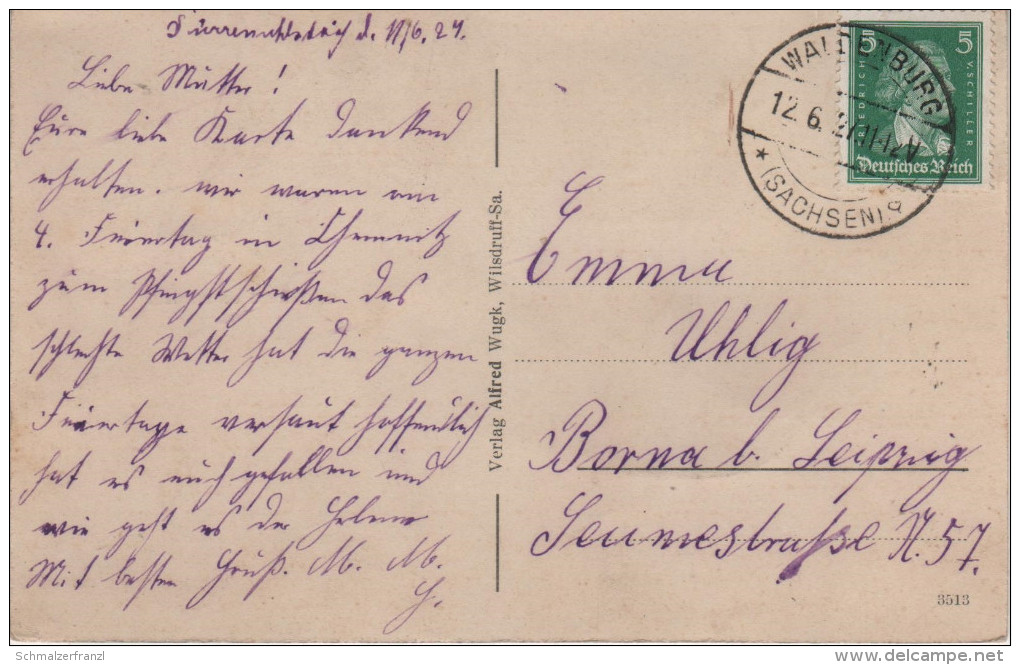 d. 11/6.27.
Liebe Mutter!
Eure liebe Karte dankend
erhalten. wir waren am
4. Feiertag in Chemnitz
zum Pfingstschießen das
schlechte Wetter hat die ganzen
Feiertage versaut hoffentlich
hat es euch gefallen und
wie geht es der Helene
Mit besten Gruß. M. M.
H.
Verlag Alfred Wugk, Wilsdruff-Sa.
WALDENBURG
12.6.27.11-12V
* (SACHSEN)
5 5
FRIEDRICH V. SCHILLER
Deutsches Reich
Emma
Uhlig
Borna b. Leipzig
Seumestraße N. 57.
3513
© Schmalzerfranzl
delcampe.net